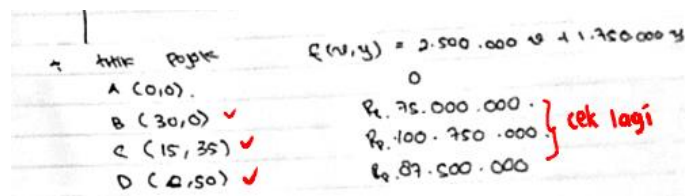 titik pojok f(x,y) = 2.500.000 x + 1.750.000 y
A (0,0). 0
B (30,0) ✓ Rp. 75.000.000.
C (15,35) ✓ Rp. 100.750.000. cek lagi
D (0,50) ✓ Rp. 87.500.000